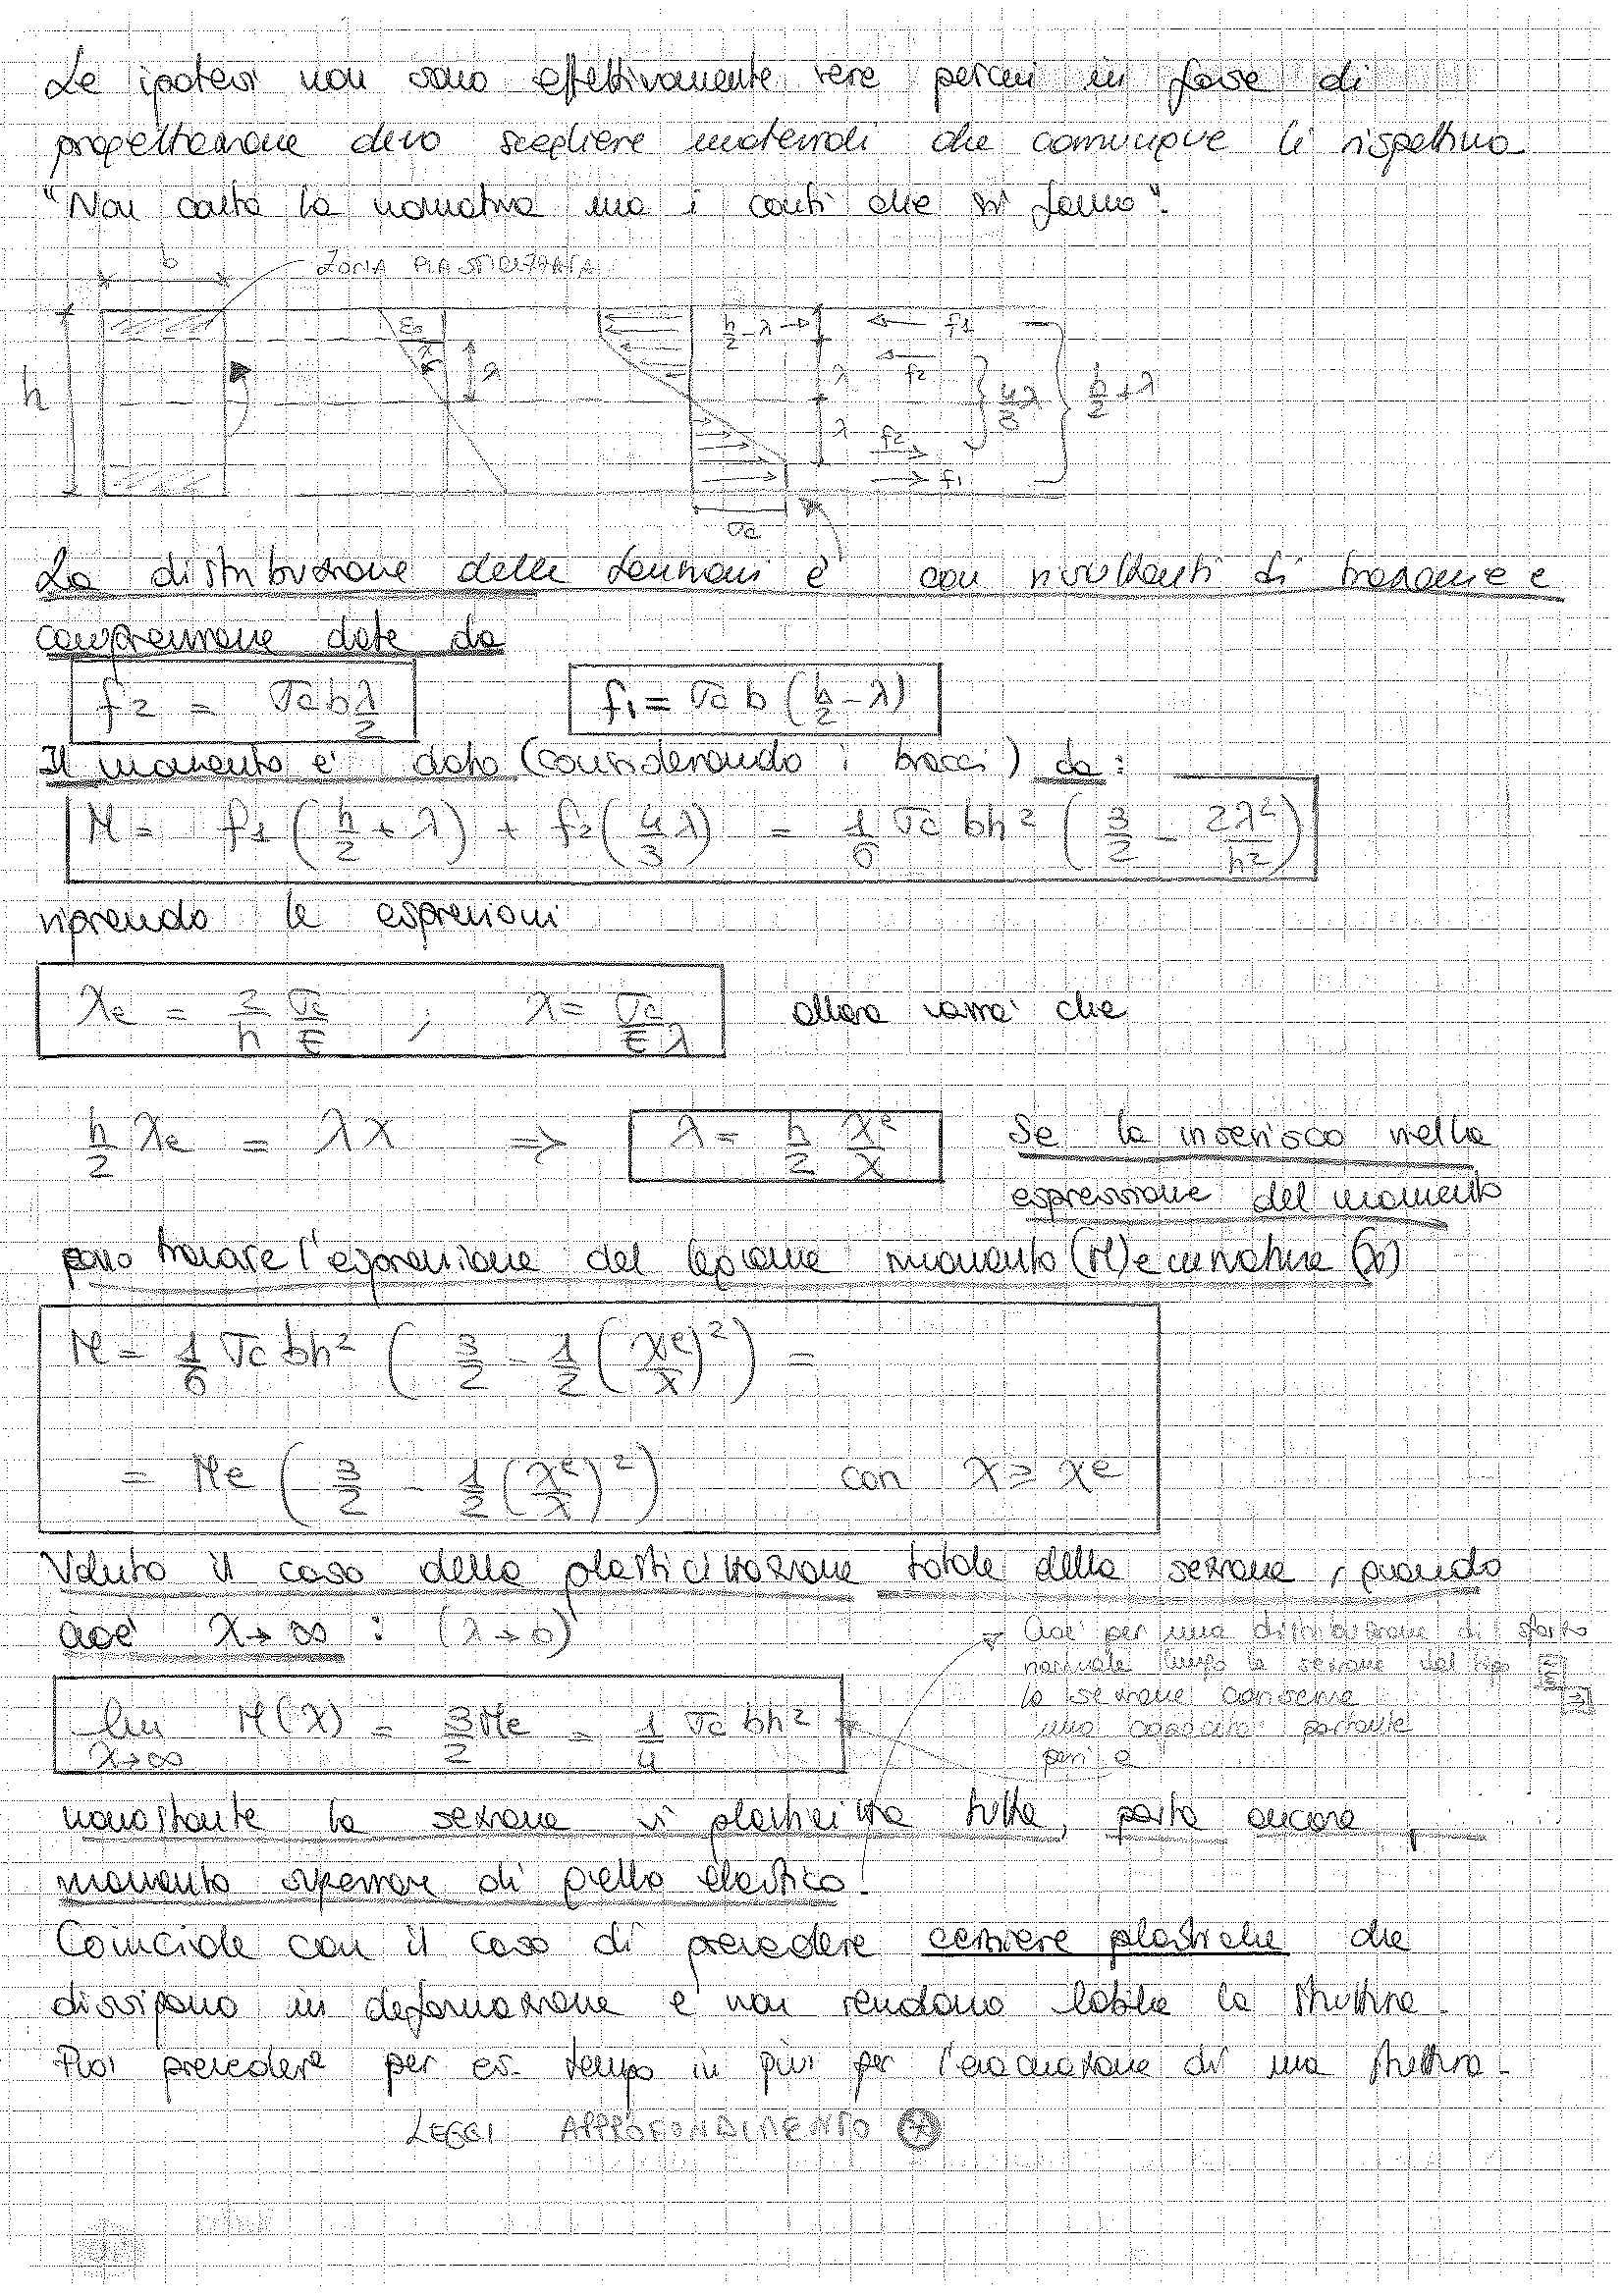 Le ipotesi non sono effettivamente vere perciò in fase di
progettazione devo scegliere materiali che comunque le rispettino
"Non conta la normativa ma i conti che si fanno".
b ZONA PLASTICIZZATA
h ε₀ λ h/2 - λ → f1
λ f2 4/3 λ h/2 + λ
λ f2
f1
σc
La distribuzione delle tensioni è con risultanti di trazione e
compressione date da
f2 = σc b λ/2 f1 = σc b (h/2 - λ)
Il momento è dato (considerando i bracci) da:
M = f1 (h/2 + λ) + f2 (4/3 λ) = 1/6 σc bh² (3/2 - 2λ²/h²)
riprendo le espressioni
χe = 2/h σc/E ; χ = σc/Eλ allora varrà che
h/2 χe = λχ ⇒ λ = h/2 χe/χ Se la inserisco nella
espressione del momento
posso trovare l'espressione del legame momento (M) e curvatura (χ)
M = 1/6 σc bh² (3/2 - 1/2 (χe/χ)²) =
= Me (3/2 - 1/2 (χe/χ)²) con χ ≥ χe
Valuto il caso della plasticizzazione totale della sezione, quando
cioè χ→∞ : (λ→0)
→ Cioè per una distribuzione di sforzo
normale lungo la sezione del tipo
la sezione conserva
una capacità portante
pari a
lim χ→∞ M(χ) = 3/2 Me = 1/4 σc bh²
nonostante la sezione si plasticizza tutta, porta ancora
momento superiore di quello elastico!
Coincide con il caso di prevedere cerniere plastiche che
dissipano in deformazione e non rendono labile la struttura.
Puoi prevedere per es. tempo in più per l'evacuazione di una struttura.
LEGGI APPROFONDIMENTO